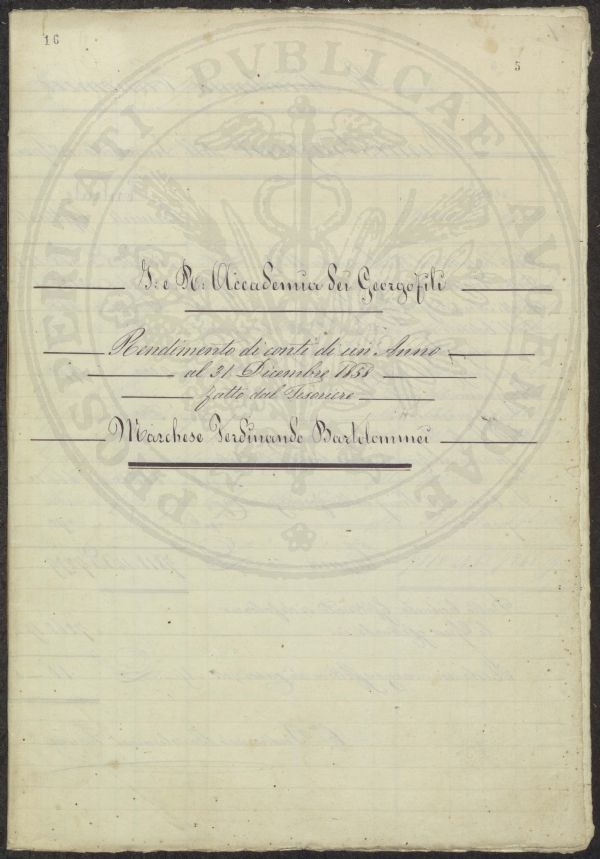 16
5
PROSPERITATI PVBLICAE AVGENDAE
I: e R: Accademia dei Georgofili
Rendimento di conti di un Anno
al 31. Dicembre 1858
fatto dal Tesoriere
Marchese Ferdinando Bartolommei